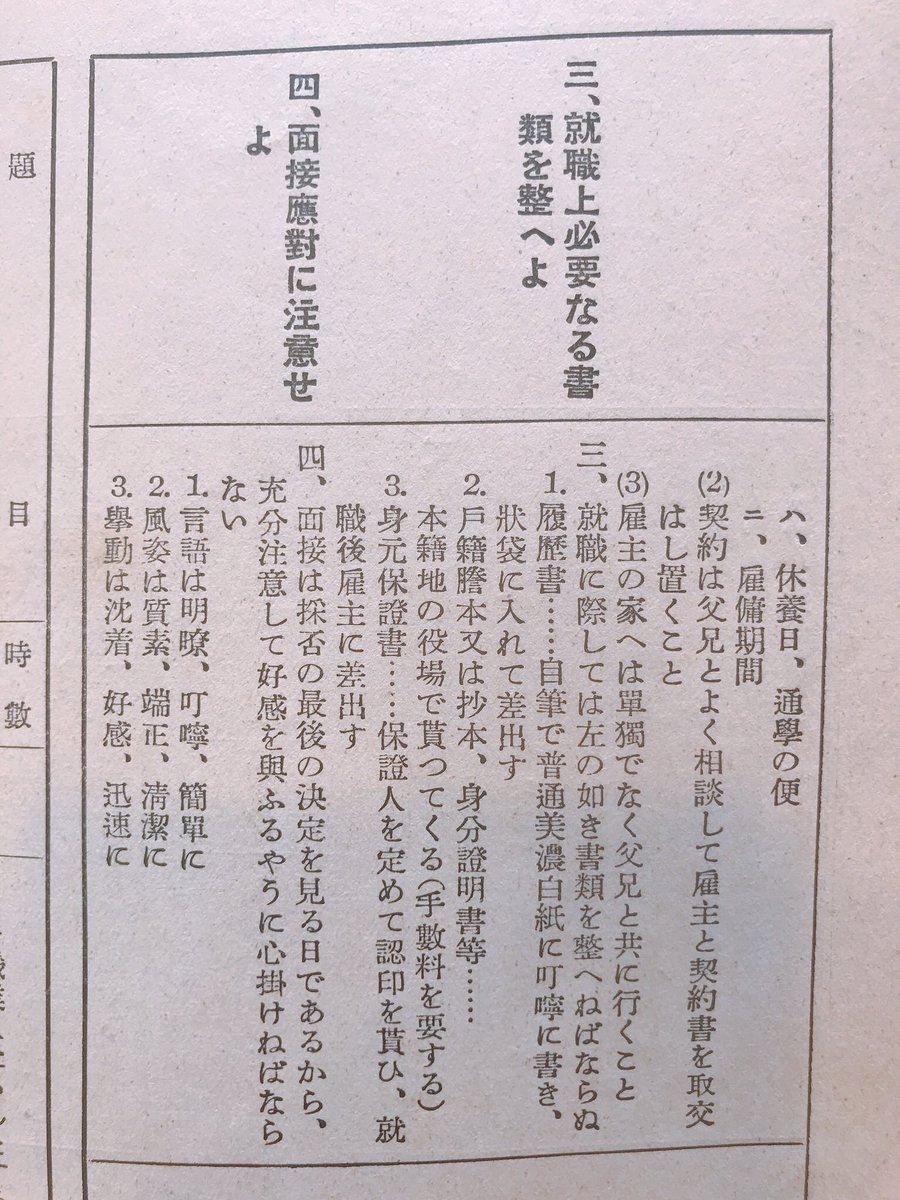 三、就職上必要なる書
類を整へよ
四、面接應對に注意せ
よ
ハ、休養日、通學の便
ニ、雇傭期間
(2)契約は父兄とよく相談して雇主と契約書を取交
はし置くこと
(3)雇主の家へは單獨でなく父兄と共に行くこと
三、就職に際しては左の如き書類を整へねばならぬ
1.履歷書……自筆で普通美濃白紙に叮嚀に書き、
狀袋に入れて差出す
2.戶籍謄本又は抄本、身分證明書等……
本籍地の役場で貰つてくる(手數料を要する)
3.身元保證書……保證人を定めて認印を貰ひ、就
職後雇主に差出す
四、面接は採否の最後の決定を見る日であるから、
充分注意して好感を與ふるやうに心掛けねばなら
ない
1.言語は明瞭、叮嚀、簡單に
2.風姿は質素、端正、淸潔に
3.擧動は沈着、好感、迅速に
題目
時數